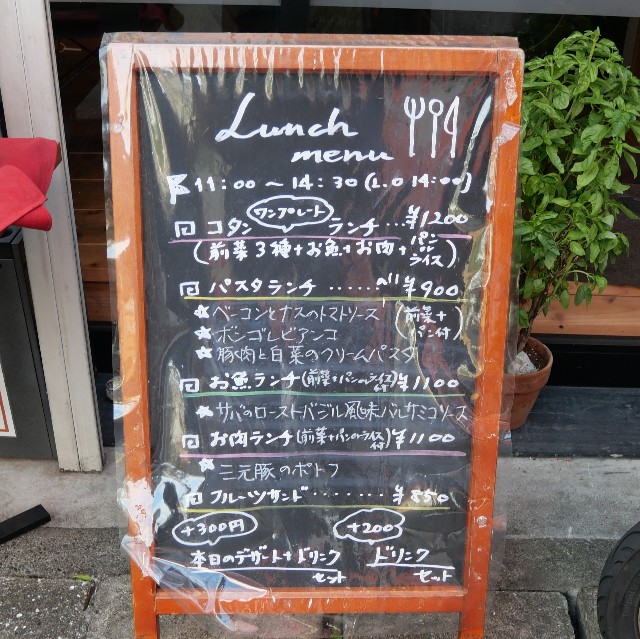 Lunch
menu
11:00 ～ 14:30 (L.O 14:00)
コタン ワンプレート ランチ … ¥1200
(前菜3種+お魚+お肉+パン or ライス)
パスタランチ …… ¥900
☆ベーコンとナスのトマトソース (前菜+パン付)
☆ボンゴレビアンコ
☆豚肉と白菜のクリームパスタ
お魚ランチ (前菜+パンorライス付) ¥1100
☆サバのローストバジル風味バルサミコソース
お肉ランチ (前菜+パンorライス付) ¥1100
☆三元豚のポトフ
フルーツサンド ........ ¥850
+300円 +200
本日のデザート+ドリンクセット ドリンクセット